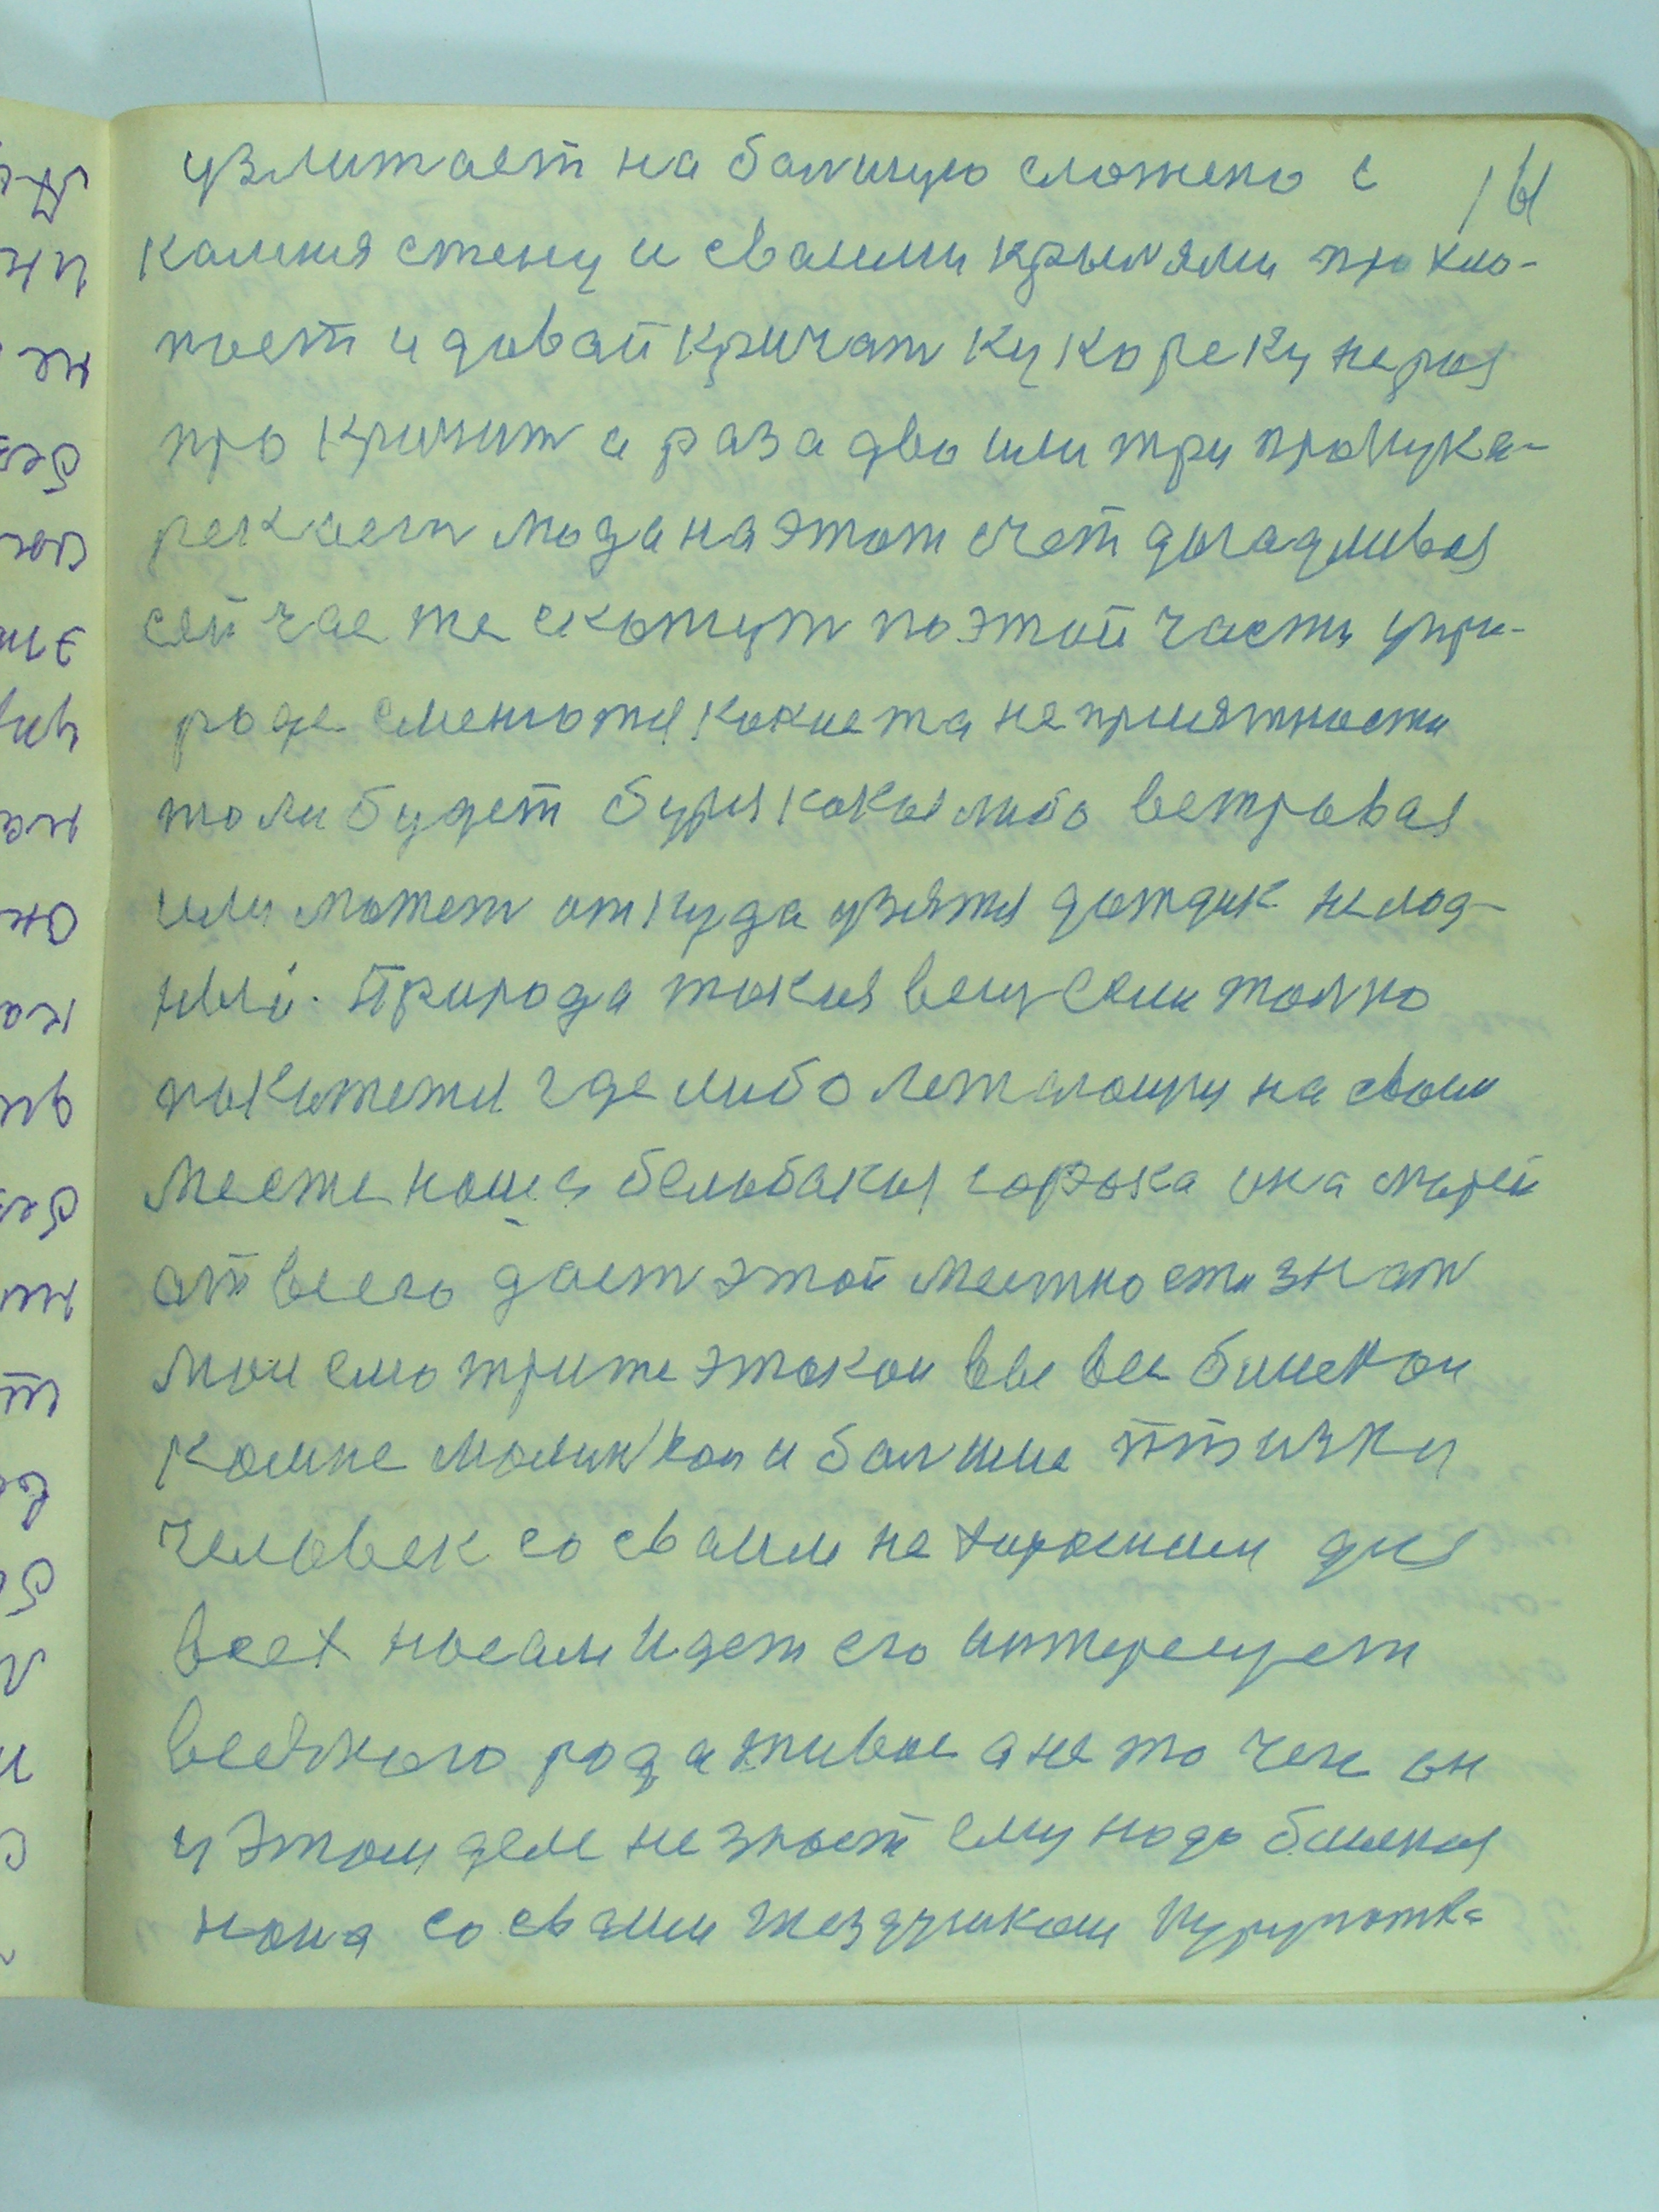 узлитает на балшую сложено с 161
камния стену и сваими крылями прохло-
пает и довай кричат кукореку не раз
про кричит а раза два или три прокука-
рекает люда на этот счет догадливая
сейчас же скажут по этой части упри-
роде сменютя какие та неприятности
толи будет буря какая либо ветровая
или может откуда узятя дождик холод-
ный. Природа такия вещ если толко
покажетя где либо летающия на своем
месте наша белобокая сорока она марей
от всего дает этой местности знат
мои смотрите этакои
камне малинкои и балшие птички
человек со сваим не хорошим для
всех носам идет его интересует
всечкого рода живое а не то чем он
у этом деле не знает ему надо
наша со сваим